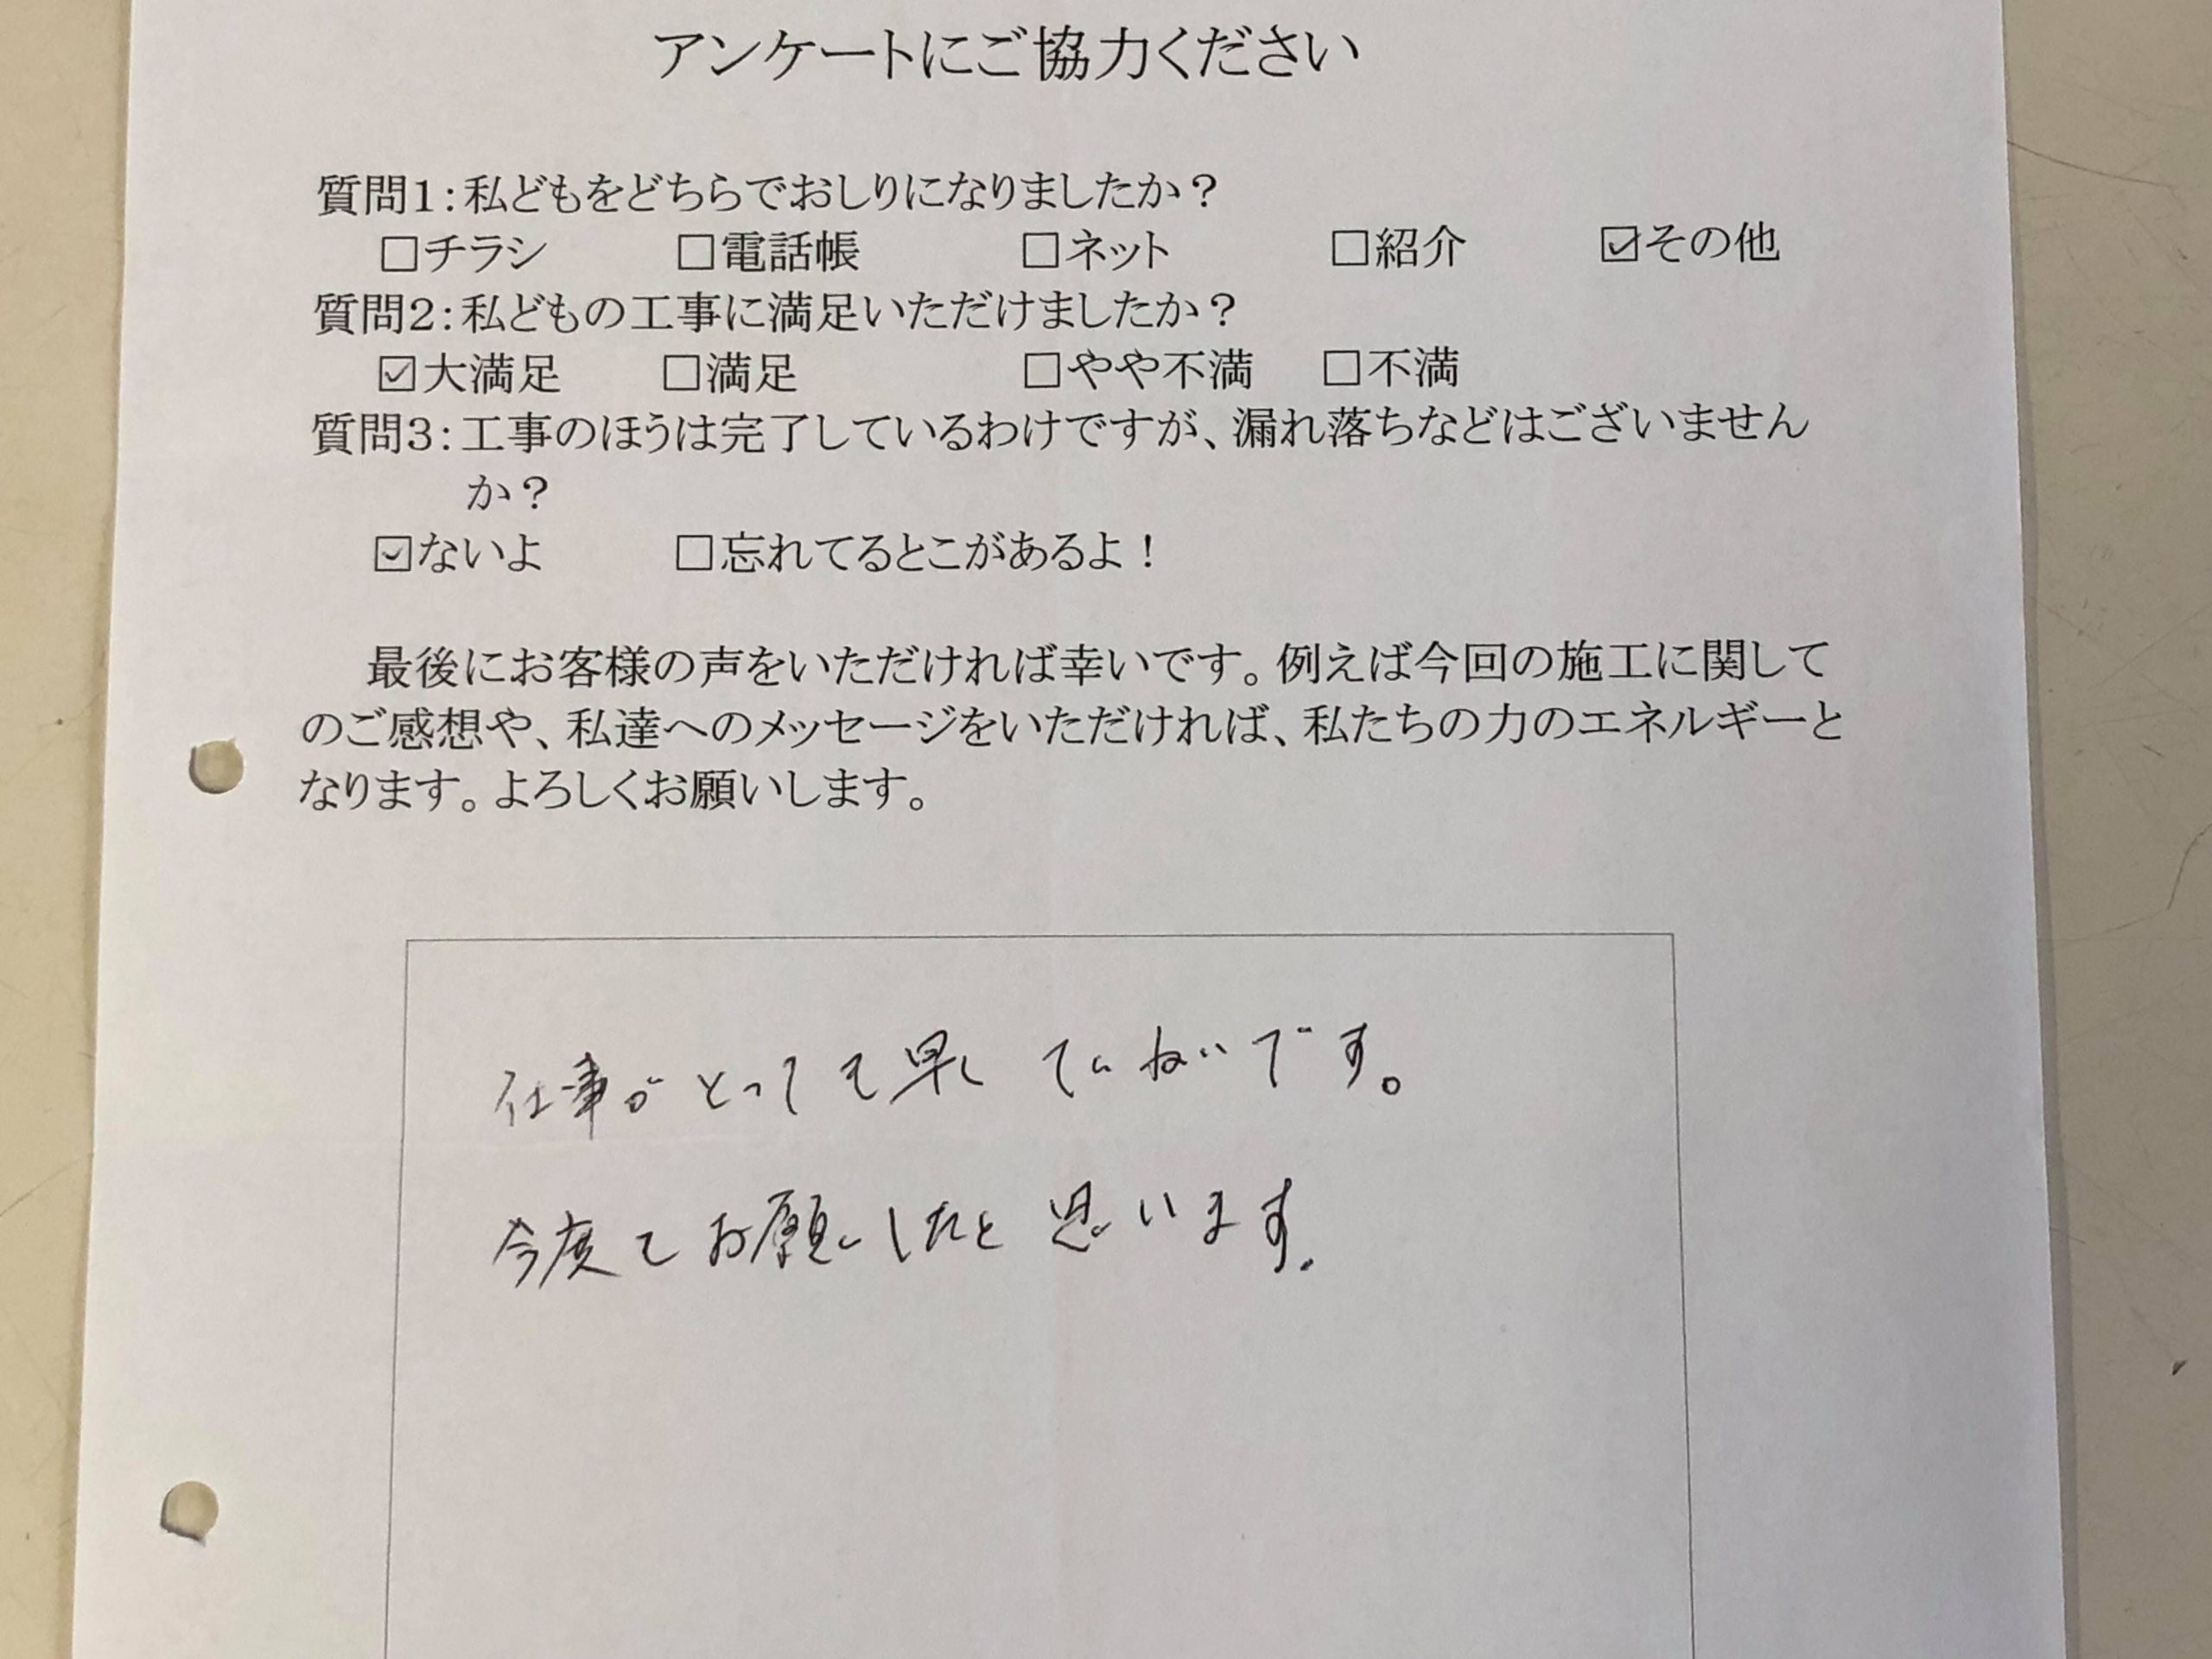 アンケートにご協力ください
質問1:私どもをどちらでおしりになりましたか?
□チラシ □電話帳 □ネット □紹介 ☑その他
質問2:私どもの工事に満足いただけましたか?
☑大満足 □満足 □やや不満 □不満
質問3:工事のほうは完了しているわけですが、漏れ落ちなどはございません
か?
☑ないよ □忘れてるとこがあるよ!
最後にお客様の声をいただければ幸いです。例えば今回の施工に関して
のご感想や、私達へのメッセージをいただければ、私たちの力のエネルギーと
なります。よろしくお願いします。
仕事がとっても早し ていねいです。
今度もお願いしたと思います。